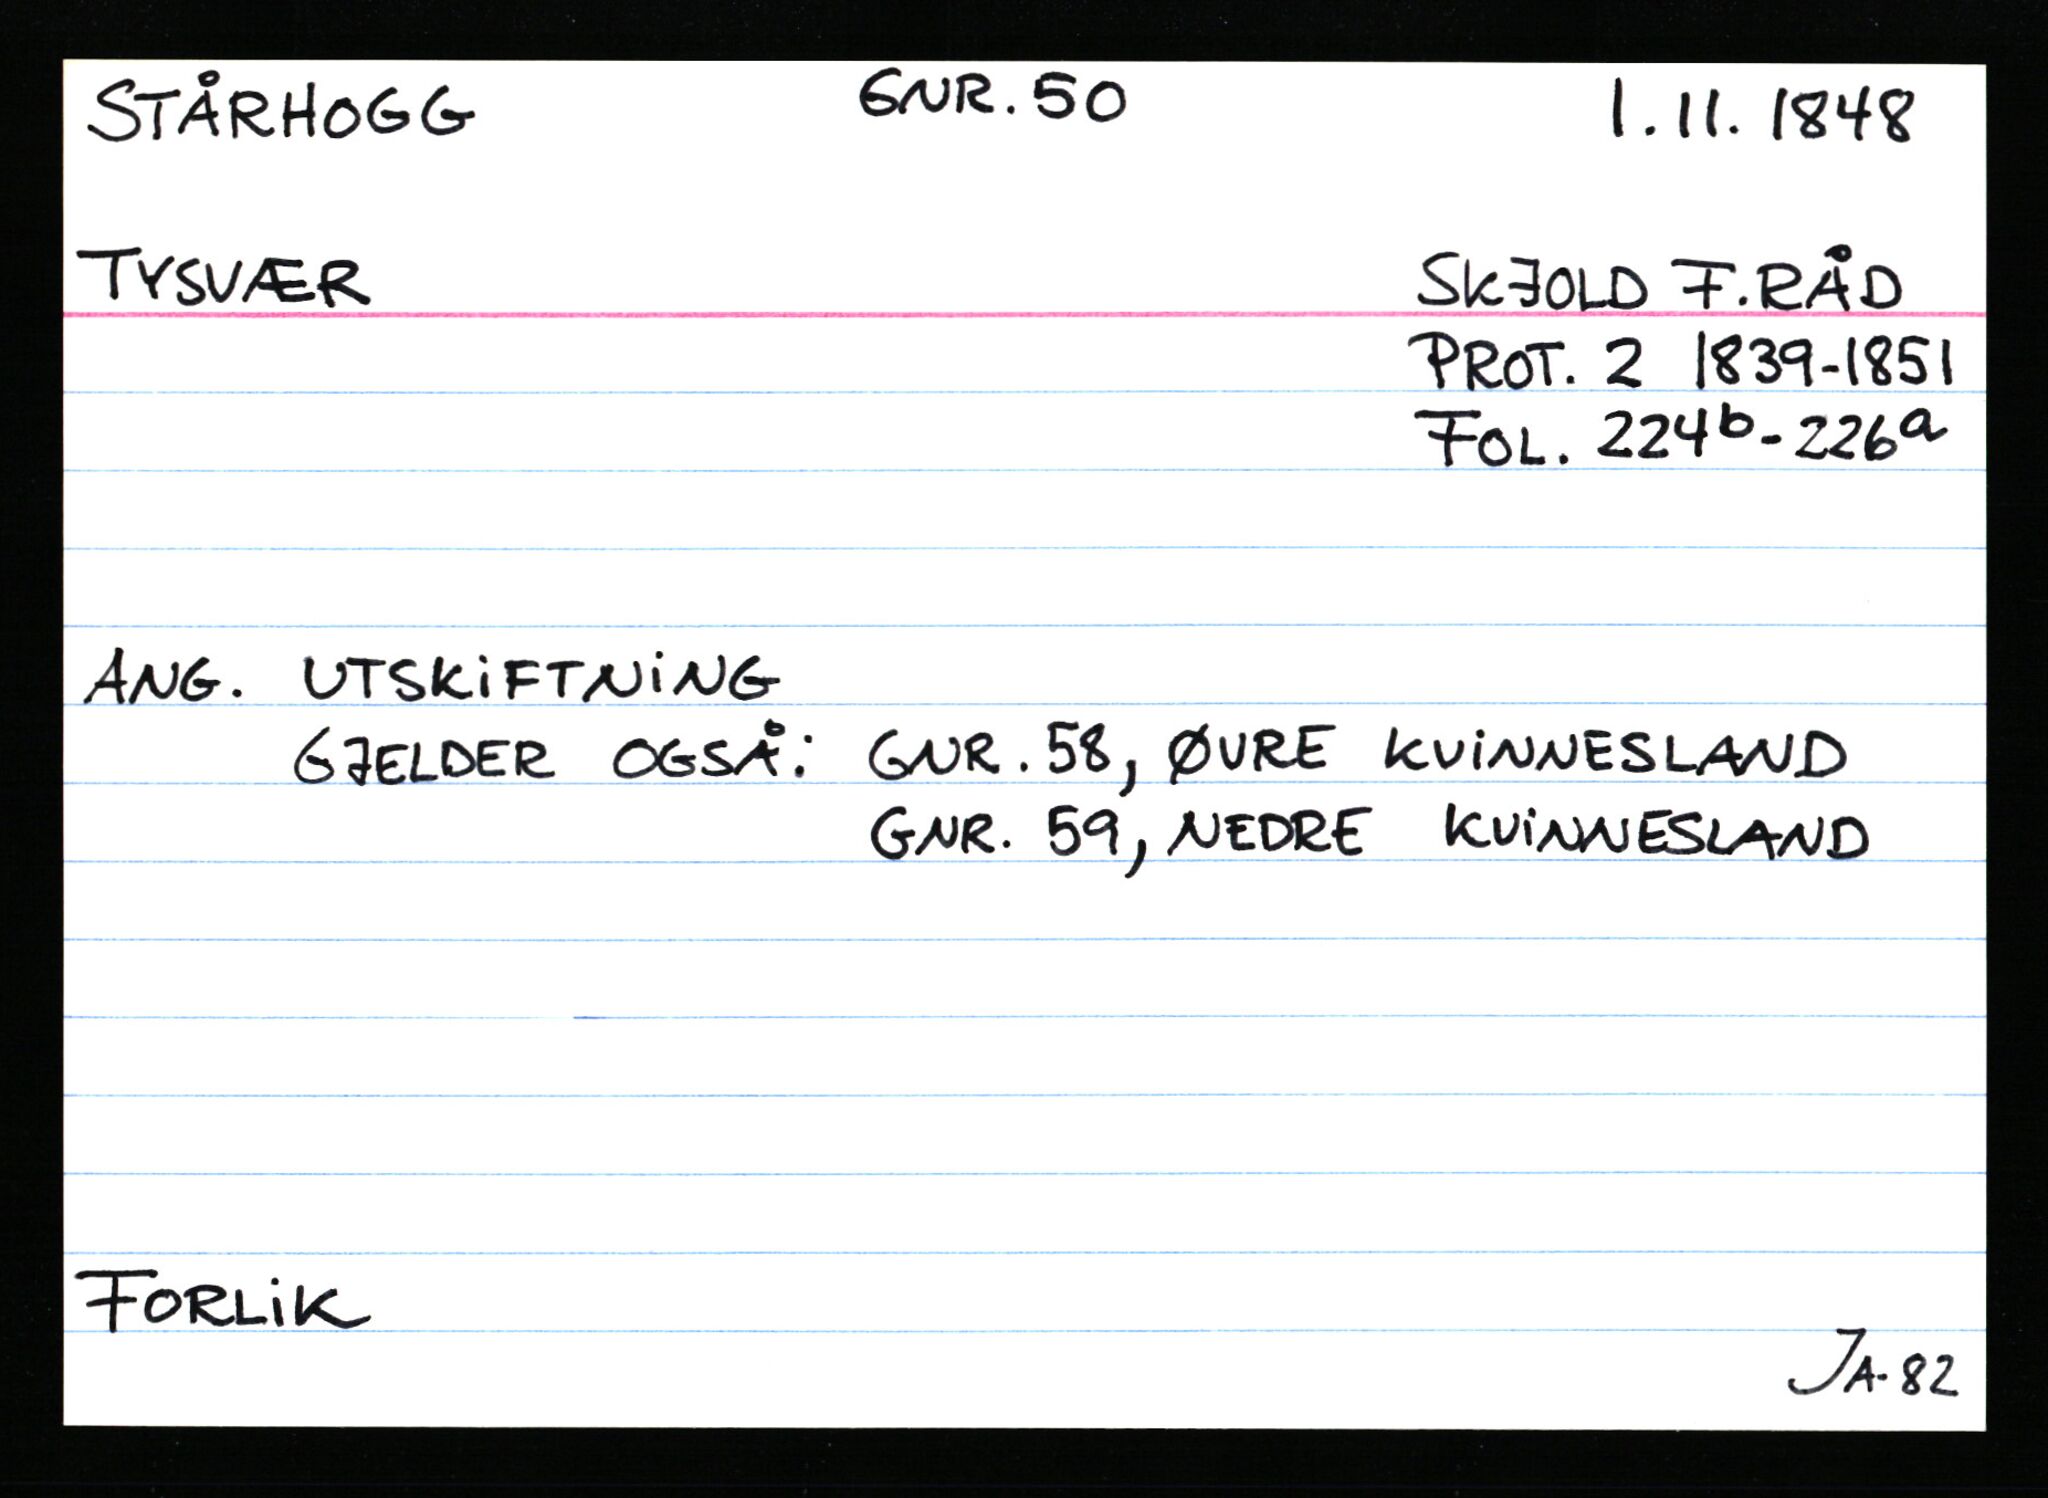 STÅRHOGG GNR. 50 1.11. 1848
TYSVÆR SKJOLD F.RÅD
PROT. 2 1839-1851
FOL. 224b-226a
ANG. UTSKIFTNING
GJELDER OGSÅ: GNR. 58, ØVRE KVINNESLAND
GNR. 59, NEDRE KVINNESLAND
FORLIK
JA-82